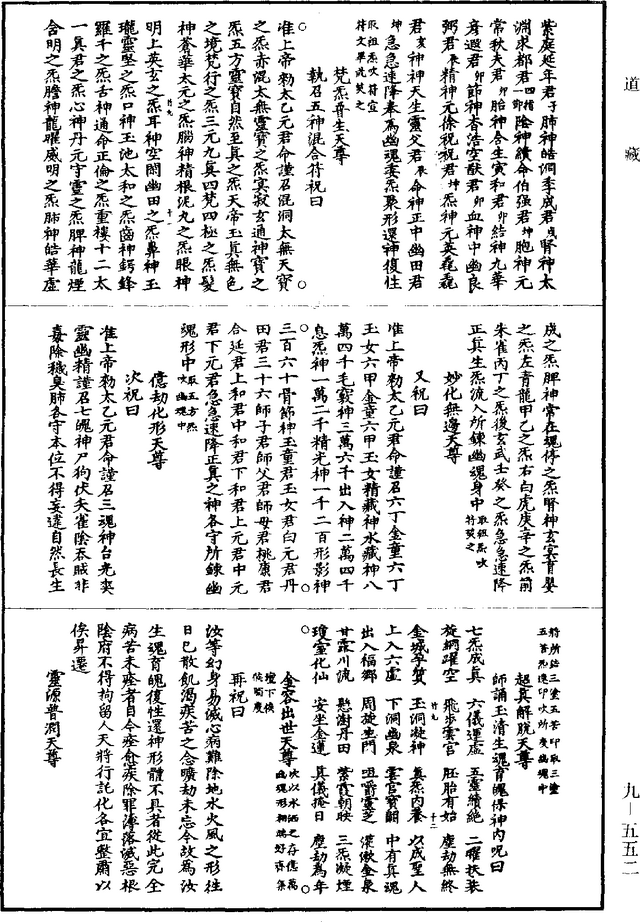 道藏
紫庭延年君子肺神皓洞李成君戌腎神太
淵求都君一卯四稽陰神續命伯强君坤胞神元
常秋夫君卯胎神含生寅和君卯結神九華
君卯節神杳浩空獸君卯血神中幽良
弼君辰精神元徐祝祝君坤炁神元英毳毳
君亥神神天生靈父君辰命神正中幽田君
坤急急速降奉爲幽魂委炁聚形還神復性
取祖炁吹符空
符文畢洗焚之
梵炁普生天尊
執召五神混合符祝曰
准上帝勑太乙元君命謹召混洞太無天寶
之炁赤混太無靈寶之炁冥寂玄通神寶之
炁五方靈寶自然至真之炁天帝玉真無色
之境梵行之炁三元九真四梵四極之炁髮
神蒼華太元之炁腦神精根泥丸之炁眼神
明上英玄之炁耳神空閑幽田之炁鼻神玉
瓏靈堅之炁口神玉池太和之炁齒神𫜵鋒
羅千之炁舌神通命正倫之炁重樓十二太
一真君之炁心神丹元守靈之炁脾神龍煙
含明之炁膽神龍曜威明之炁肺神皓華虛
成之炁脾神常在魂停之炁腎神玄冥育嬰
之炁左青龍甲乙之炁右白虎庚辛之炁前
朱雀丙丁之炁後玄武壬癸之炁急急速降
正真生炁流入所鍊幽魂身中取祖炁吹符焚之
妙化無邊天尊
又祝曰
准上帝勑太乙元君命謹召六丁金童六丁
玉女六甲金童六甲玉女精藏神水藏神八
萬四千毛竅神三萬六千出入神二萬四千
息炁神一萬二千精光神一千二百形影神
三百六十骨節神玉童君玉女君白元君丹
田君三十六師子君師父君師母君桃康君
合延君上和君中和君下和君上元君中元
君下元君急急速降正真之神各守所鍊幽
魂形中取五方炁吹幽魂中
億劫化形天尊
次祝曰
准上帝勑太乙元君命謹召三魂神台光爽
靈幽精謹召七魄神尸狗伏矢雀陰吞賊非
毒除穢臭肺各守本位不得妄違自然長生
超真解脫天尊
師誦玉清生魂育魄保神內呪曰
七炁成真　六儀運處　五靈續絶　二曜扶裝
旋綱躍空　飛步雲官　胚胎有始　塵劫無終
金城孕質　玉洞凝神　真炁內養　以成聖人
上入六虛　下洞幽泉　雲宮寶闕　中有真魂
出入福鄉　周旋生門　咀嚼靈芝　灌漱金泉
甘露川流　懸澍丹田　紫霞朝映　三炁凝煙
瓊室化仙　安坐金蓮　真儀掩日　塵劫為年
金容出世天尊
再祝曰
汝等幻身易滅心病難除地水火風之形徃
日已散飢渴疾苦之念曠劫未忘今故為汝
生魂育魄復性還神形體不具者從此完全
病苦未痊者自今痊愈疾除罪薄落滅惡根
陰府不得拘留人天將行託化各宜整肅以
俟昇遷
靈源普潤天尊
九—五五二